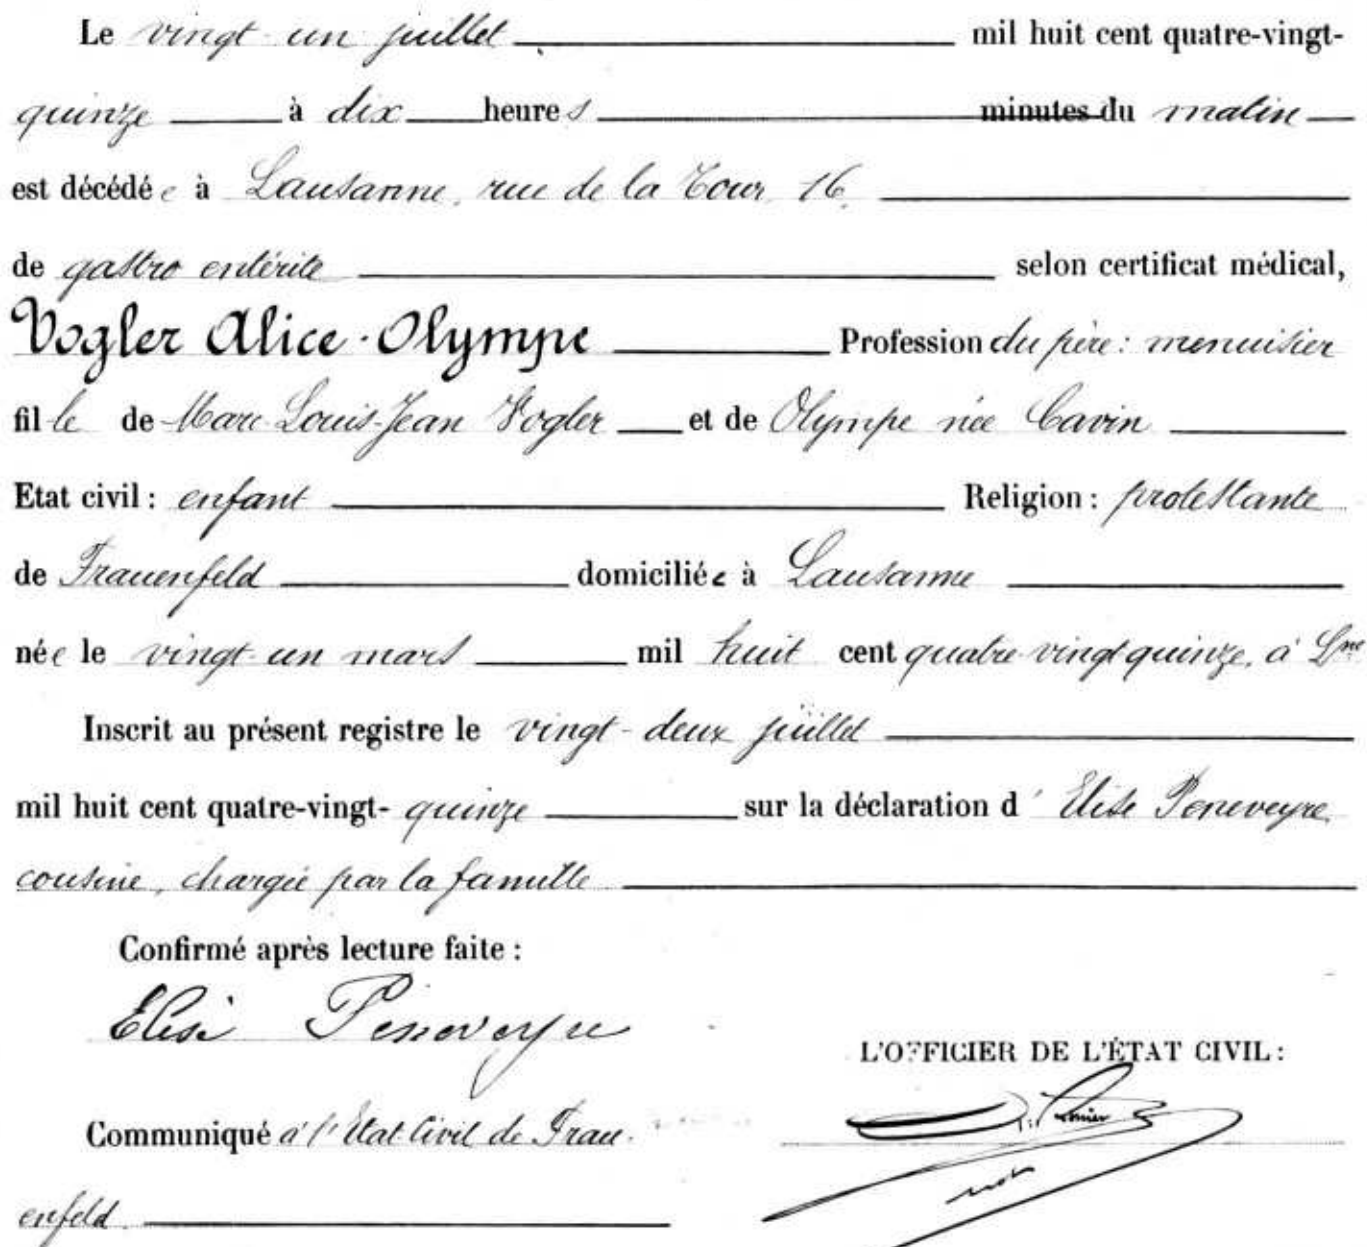 Le vingt-un juillet mil huit cent quatre-vingt-
quinze à dix heures minutes du matin
est décédée à Lausanne, rue de la Tour, 16,
de gastro entérite selon certificat médical,
Vogler Alice-Olympe Profession du père: menuisier
fille de Marc-Louis-Jean Vogler et de Olympe née Cavin
Etat civil: enfant Religion: protestante
de Frauenfeld domiciliée à Lausanne
née le vingt-un mars mil huit cent quatre-vingt quinze, à Lne
Inscrit au présent registre le vingt-deux juillet
mil huit cent quatre-vingt-quinze sur la déclaration d'Elise Peneveyre,
cousine, chargée par la famille
Confirmé après lecture faite:
Elise Peneveyre
L'OFFICIER DE L'ÉTAT CIVIL:
Communiqué à l'Etat Civil de Frau-
enfeld.